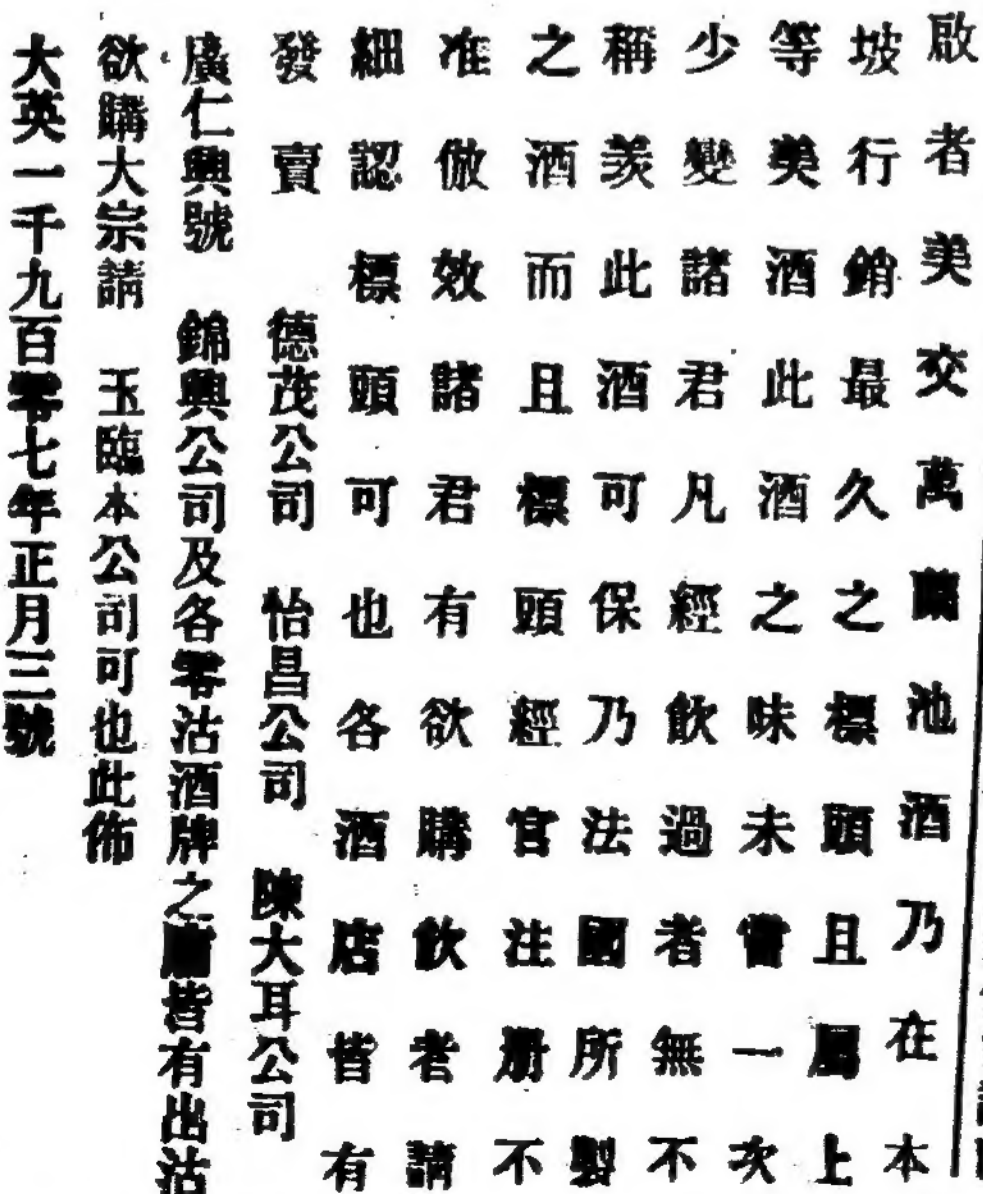 啟者美交萬蘭池酒乃在本
坡行銷最久之標頭且屬上
等美酒此酒之味未嘗一次
少變諸君凡經飲過者無不
稱羨此酒可保乃法國所製
之酒而且標頭經官注册不
准倣效諸君有欲購飲者請
細認標頭可也各酒店皆有
發賣 德茂公司 怡昌公司 陳大耳公司
廣仁興號 錦興公司及各零沽酒牌之店皆有出沽
欲購大宗請 玉臨本公司可也此佈
大英一千九百零七年正月三號